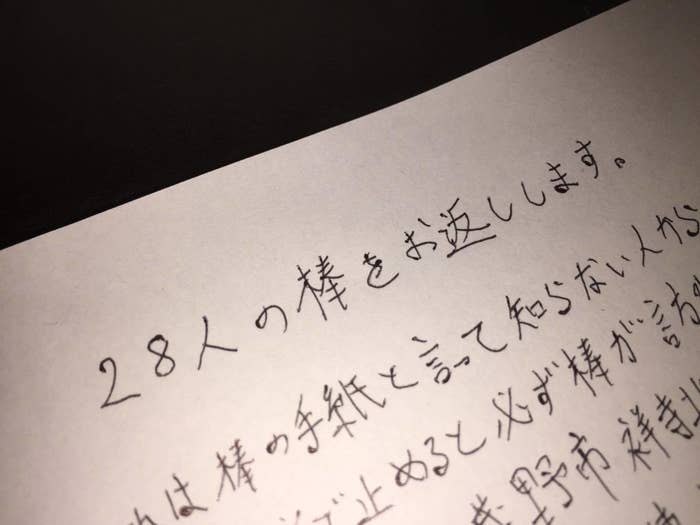 28人の棒をお返しします。
は棒の手紙と言って知らない人から
で止めると必ず棒が訪
野市祥寺北